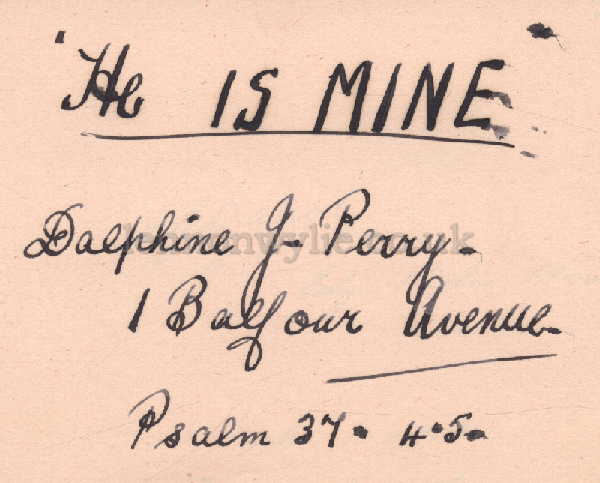 "He IS MINE"
Dalphine J- Perry-
1 Balfour Avenue-
Psalm 37. 4.5.
lennonwylie.co.uk